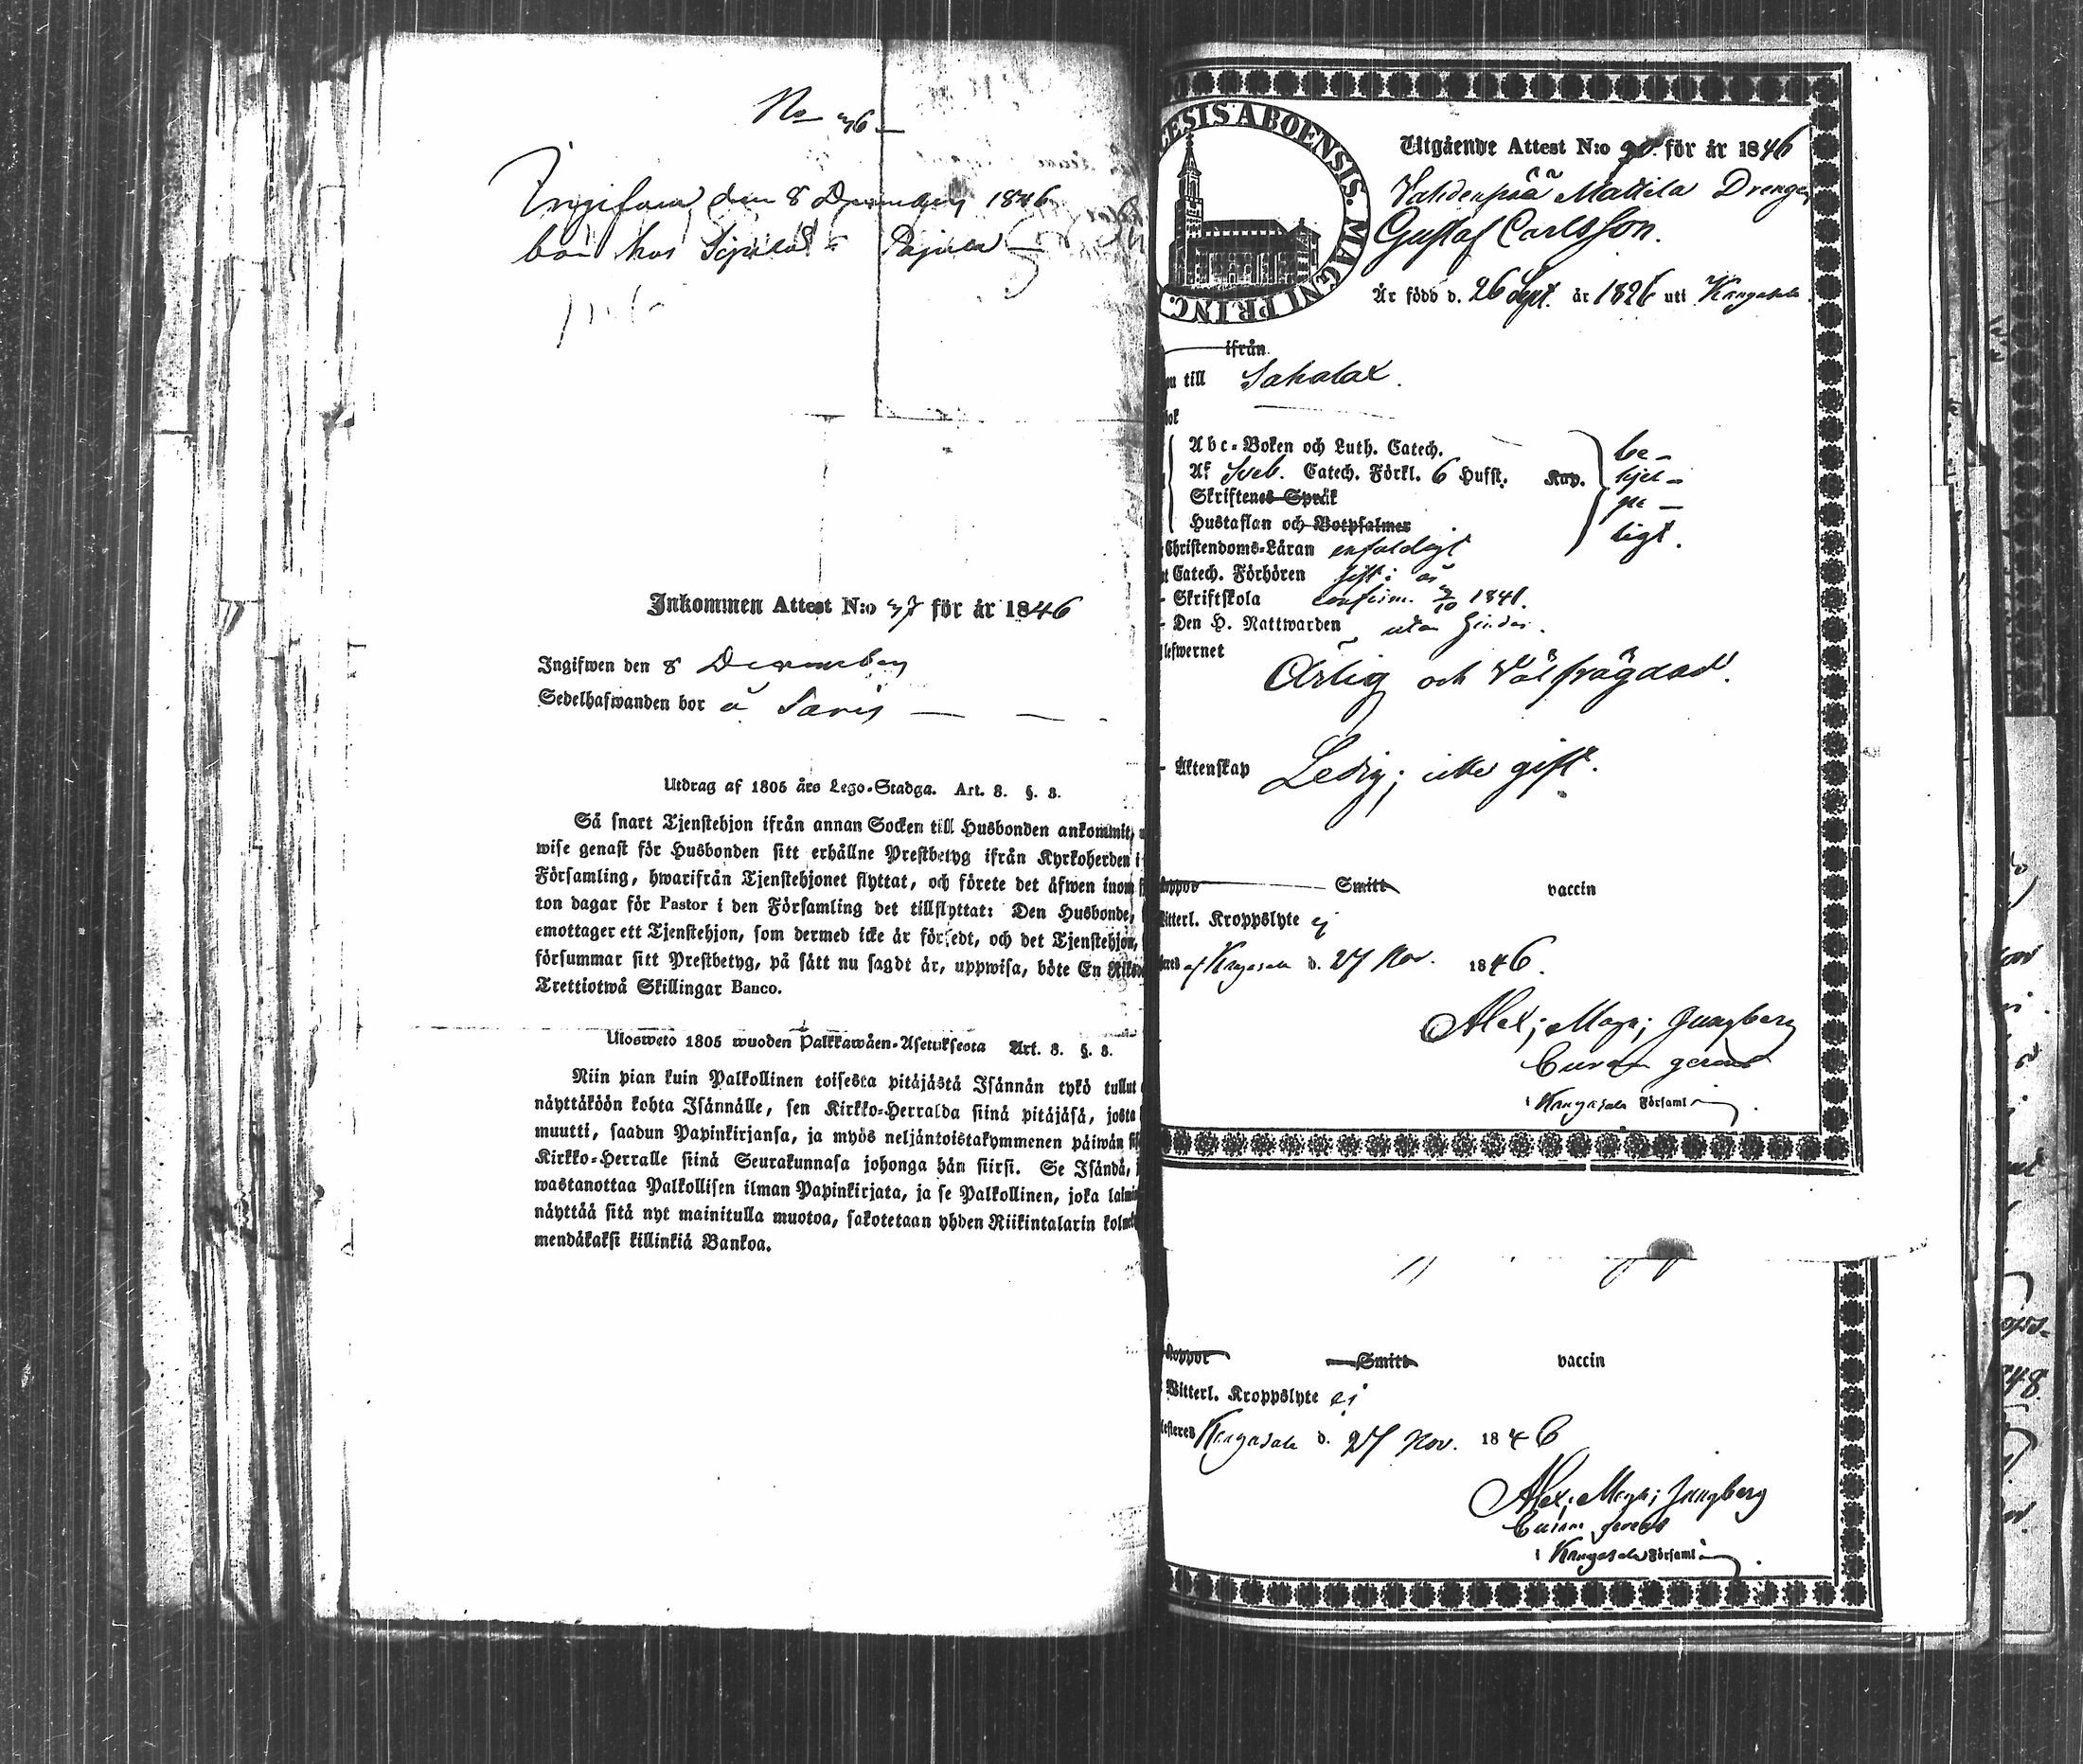 No 36
Ingifven den 8 December 1846
bor hos
Inkommen Attest N:o 37 för år 1846
Ingifwen den 8 December
Sedelhafwanden bor å Saris
Utdrag af 1805 års Lego-Stadga. Art. 8. §. 3.
Så snart Tjenstehjon ifrån annan Socken till Husbonden ankommit,
wise genast för Husbonden sitt erhållne Prestbetyg ifrån Kyrkoherden i
Församling, hwarifrån Tjenstehjonet flyttat, och förete det äfwen inom
ton dagar för Pastor i den Församling det tillflyttat: Den Husbonde,
emottager ett Tjenstehjon, som dermed icke är försedt, och det Tjenstehjon,
försummar sitt Prestbetyg, på sätt nu sagdt är, uppwisa, böte En
Trettiotwå Skillingar Banco.
Ulosweto 1805 wuoden Palkkawäen-Asetuksesta Art. 8. §. 3.
Niin pian kuin Palkollinen toisesta pitäjästä Isännän tykö tullut
näyttäköön kohta Isännälle, sen Kirkko-Herralda siinä pitäjäsä, josta
muutti, saadun Papinkirjansa, ja myös neljäntoistakymmenen päiwän
Kirkko-Herralle siinä Seurakunnasa johonga hän siirsi. Se Isändä,
wastanottaa Palkollisen ilman Papinkirjata, ja se Palkollinen, joka
näyttää sitä nyt mainitulla muotoa, sakotetaan yhden Riikintalarin
mendäkaksi killinkiä Bankoa.
ESIS ABOENSIS. MAGNI PRINC.
Utgående Attest N:o för år 1846
Vahdenpää Mattila Drengen
Gustaf Carlsson.
Är född d. 26 Sept. år 1826 uti Kangasala
ifrån
till Sahalax.
Abc-Boken och Luth. Catech. be-
Af Sveb. Catech. Förkl. 6 Hufst. Kap. hjel-
Skriftenes Språk pe-
Hustaflan och Botpsalmer ligt.
Christendoms-Läran enfaldigt
Catech. Förhören
Skriftskola confirm. 1841.
Den H. Nattwarden utan hinder.
lefwernet
Ärlig och Välfrägdad.
Äktenskap Ledig; icke gift.
Koppor Smitt vaccin
Witterl. Kroppslyte ej
af Kangasala d. 27 Nov. 1846.
Alex; Magn; Ljungberg
Curam gerens
i Kangasala Församl
Koppor Smitt vaccin
Witterl. Kroppslyte ej
Kangasala d. 27 Nov. 1846
Alex; Magn; Ljungberg
Curam gerens
i Kangasala Församl